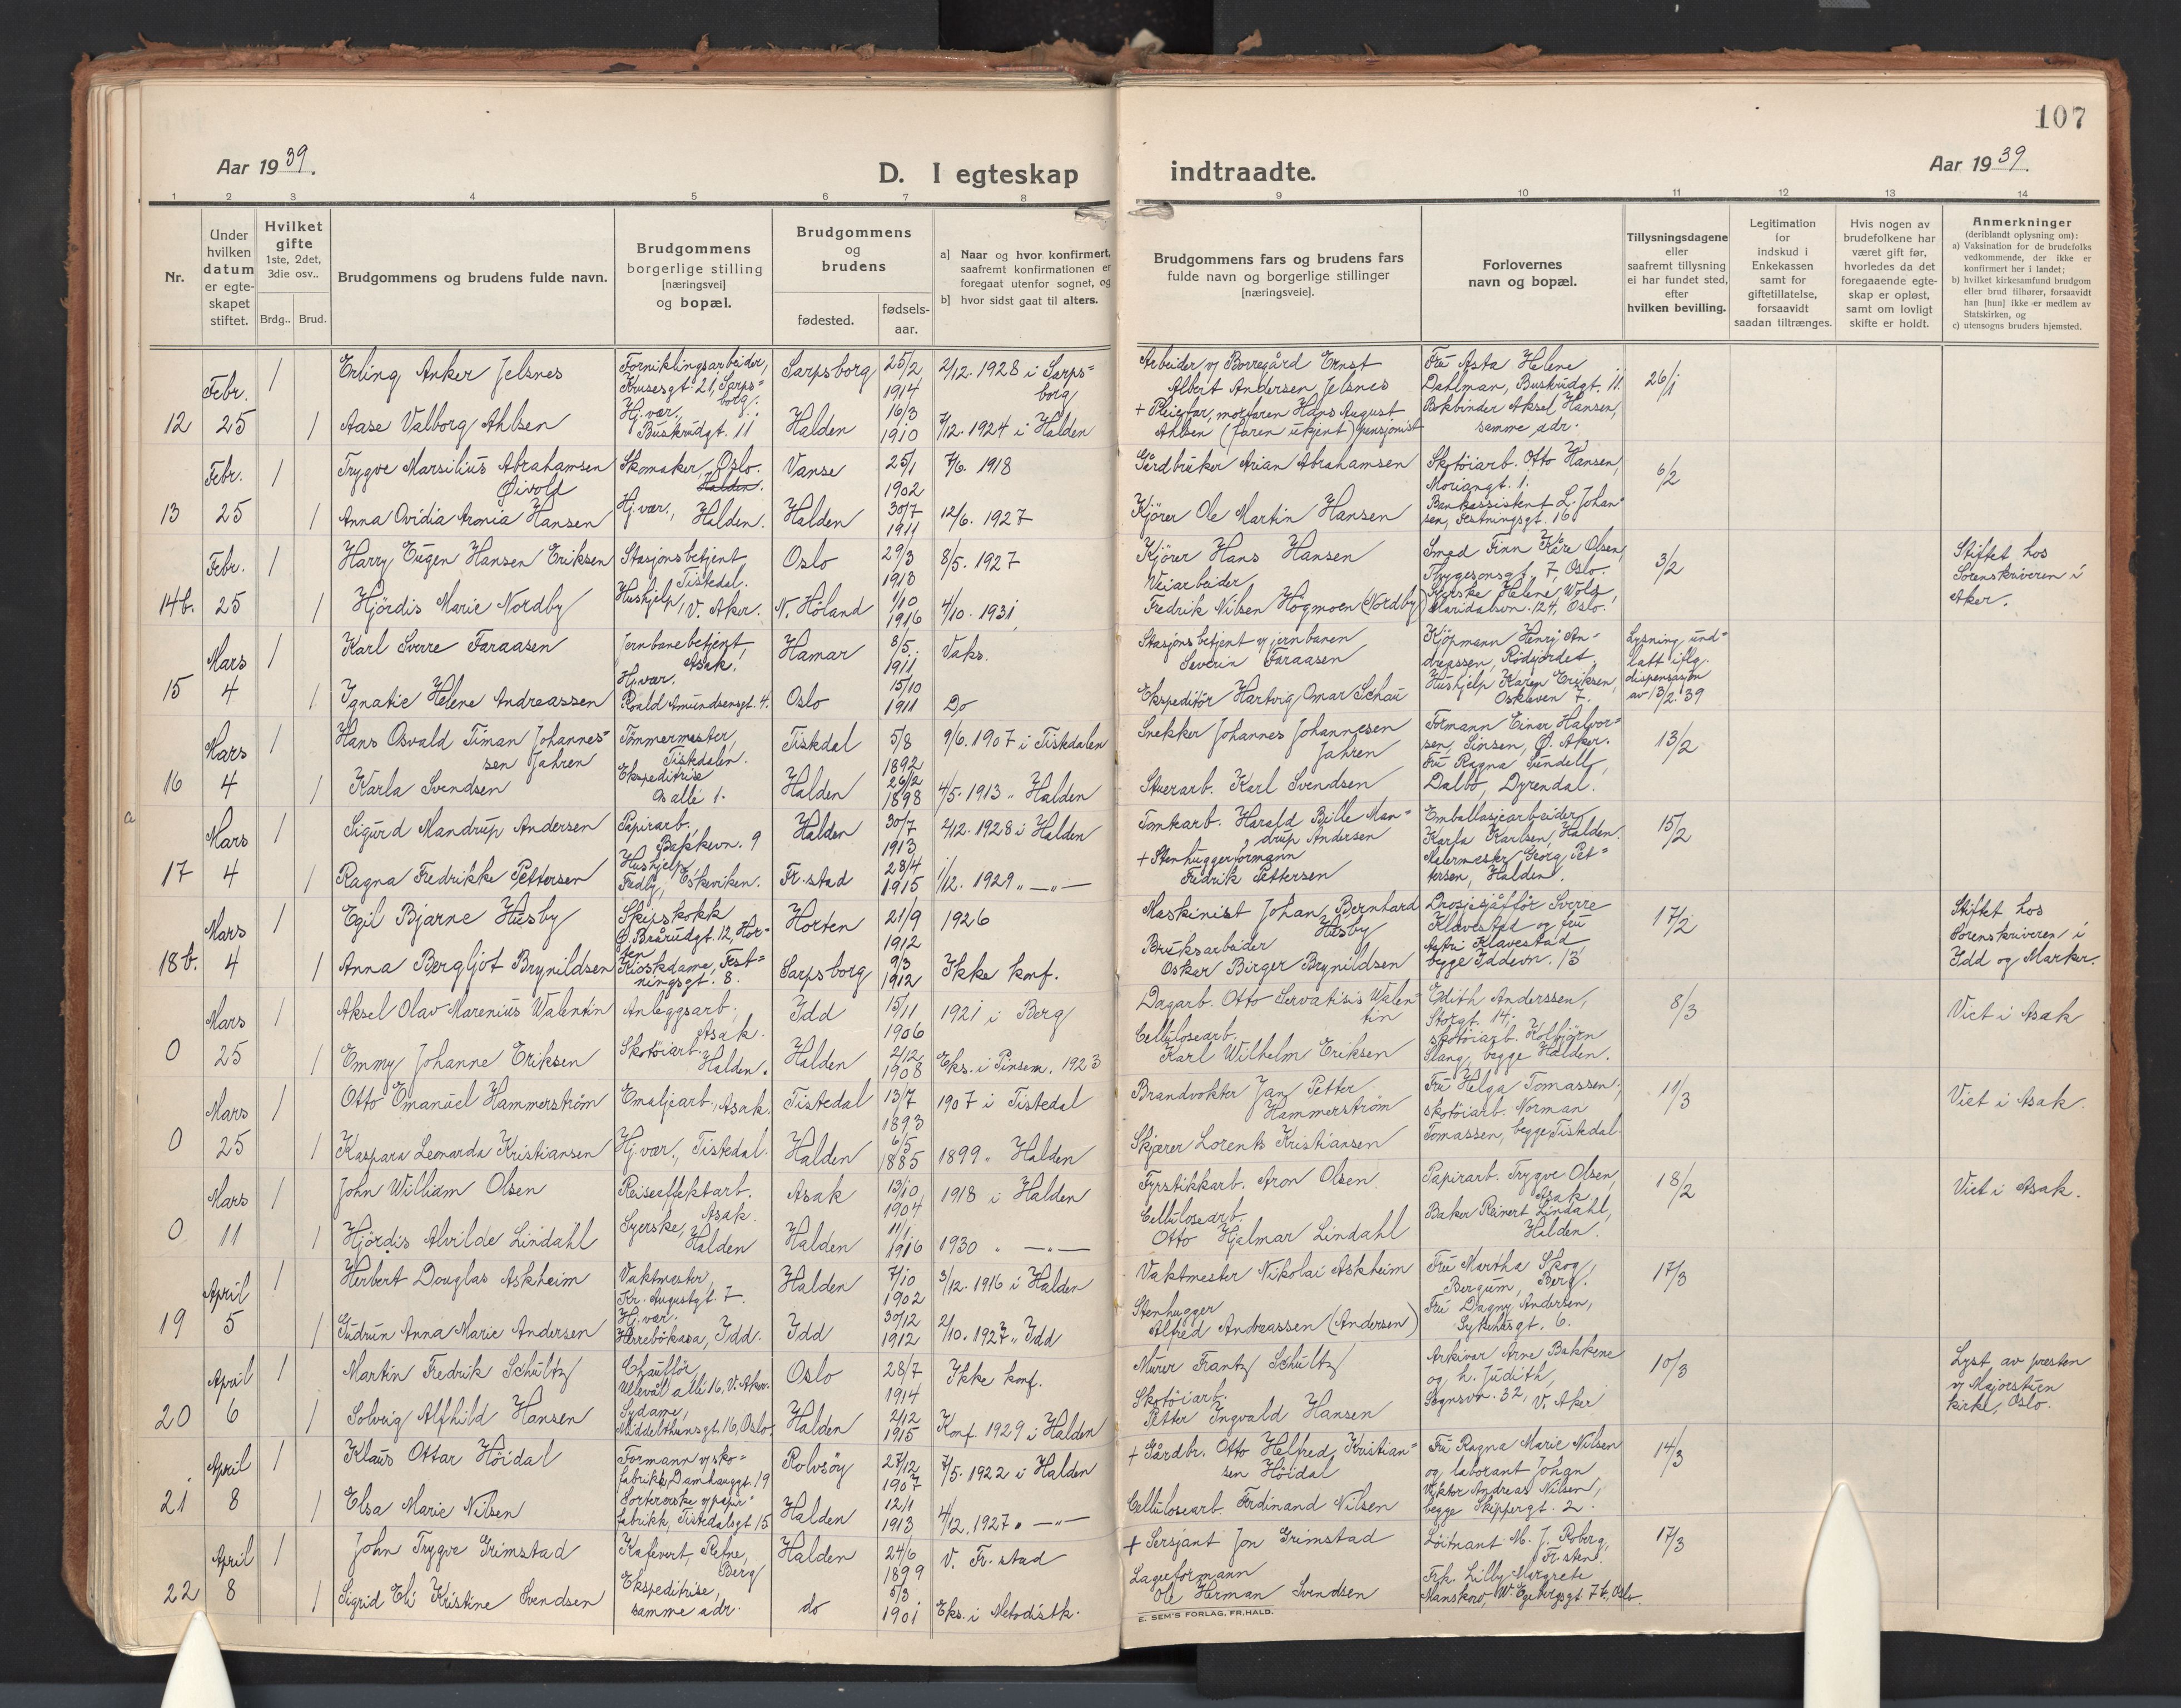 107
Aar 1939.
D. I egteskap indtraadte.
Aar 1939.
1 2 3 4 5 6 7 8 9 10 11 12 13 14
Nr.
Under hvilken datum er egteskapet stiftet.
Hvilket gifte 1ste, 2det, 3die osv..
Brdg.. Brud.
Brudgommens og brudens fulde navn.
Brudgommens borgerlige stilling [næringsvei] og bopæl.
Brudgommens og brudens
fødested.
fødsels-aar.
a] Naar og hvor konfirmert, saafremt konfirmationen er foregaat utenfor sognet, og
b] hvor sidst gaat til alters.
Brudgommens fars og brudens fars fulde navn og borgerlige stillinger [næringsveie].
Forlovernes navn og bopæl.
Tillysningsdagene eller saafremt tillysning ei har fundet sted, efter hvilken bevilling.
Legitimation for indskud i Enkekassen samt for giftetillatelse, forsaavidt saadan tiltrænges.
Hvis nogen av brudefolkene har været gift før, hvorledes da det foregaaende egteskap er opløst, samt om lovligt skifte er holdt.
Anmerkninger (deriblandt oplysning om):
a) Vaksination for de brudefolks vedkommende, der ikke er konfirmert her i landet;
b) hvilket kirkesamfund brudgom eller brud tilhører, forsaavidt han [hun] ikke er medlem av Statskirken, og
c) utensogns bruders hjemsted.
Febr. 1 Erling Anker Jelsnes Forniklingsarbeider, Krusesgt. 21, Sarpsborg. Sarpsborg 25/2 1914 2/12. 1928 i Sarpsborg Arbeider v/ Borregård Ernst Albert Andersen Jelsnes Fru Asta Helene Dahlman, Buskrudgt. 11. 26/1
12 25 1 Aase Valborg Ahlsen Hj.vær., Buskrudgt. 11 Halden 16/3 1910 7/12. 1924 i Halden + Pleiefar, morfaren Hans August Ahlsen (faren ukjent) pensjonist Bokbinder Aksel Hansen, samme adr.
Febr. 1 Trygve Marsilius Abrahamsen Øivold Skomaker, Oslo. Halden. Vanse 25/1 1902 7/6. 1918 Gårdbruker Arian Abrahamsen Skotöiarb. Otto Hansen, Moriangt. 1. 6/2
13 25 1 Anna Ovidia Aronia Hansen Hj.vær., Halden. Halden 30/7 1911 12/6. 1927 Kjörer Ole Martin Hansen Bankassistent L. Johansen, Festningsgt. 16
Febr. 1 Harry Eugen Hansen Eriksen Stasjonsbetjent Tistedal. Oslo 29/3 1913 8/5. 1927 Kjörer Hans Hansen Smed Finn Kåre Olsen, Trygesonsgt. 7, Oslo. 3/2 Stiftet hos Sorenskriveren i Aker.
14b. 25 1 Hjördis Marie Nordby Hushjelp, V. Aker. N. Höland 1/10 1916 4/10. 1931 Veiarbeider Fredrik Nilsen Högmoen (Nordby) Syerske Helene Wold, Maridalsvn. 124, Oslo.
Mars 1 Karl Sverre Faraasen Jernbanebetjent, Asak. Hamar 8/5. 1911 Vaks. Stasjonsbetjent v/ jernbanen Severin Faraasen Kjöpmann Henry Andreassen, Rödfjordet. Lysning undlatt iflg. dispensasjon av 13/2. 39
15 4 1 Ignatie Helene Andreassen Hj.vær. Roald Amundsensgt. 4. Oslo 15/10 1911 Do Ekspeditör Hartvig Omar Schau Hushjelp Karen Eriksen, Oskleven 7.
Mars 1 Hans Osvald Timan Johannessen Jahren Tömmermester, Tistedalen. Tistedal 5/8 1892 9/6. 1907 i Tistedalen Snekker Johannes Johannesen Jahren Formann Einar Halvorsen, Sinsen, Ø. Aker. 13/2
16 4 1 Karla Svendsen Ekspeditrise Os allé 1. Halden 26/12 1898 4/5. 1913 " Halden Stuerarb. Karl Svendsen Fru Ragna Sundell, Dalbo, Dyrendal.
Mars 1 Sigurd Mandrup Andersen Papirarb. Bakkevn. 9 Halden 30/7 1913 2/12. 1928 i Halden Tomtearb. Harald Bille Mandrup Andersen Emballasjearbeider Karfa Karlsen, Halden. 15/2
17 4 1 Ragna Fredrikke Pettersen Hushjelp, Fredly, Eskeviken. Fr.stad 28/4 1915 1/12. 1929 " —"— + Stenhuggerformann Fredrik Pettersen Malermester Georg Pettersen, Halden.
Mars 1 Egil Bjarne Husby Skipskokk Ö. Brårudgt. 12, Horten Horten 21/9 1912 1926 Maskinist Johan Bernhard Husby Drosjesjåför Sverre Klavestad og fru 17/2 Stiftet hos Sorenskriveren i Idd og Marker.
18b. 4 1 Anna Bergljot Brynildsen Kioskdame, Festningsgt. 8. Sarpsborg 9/3 1912 Ikke konf. Bruksarbeider Oskar Birger Brynildsen Astri Klavestad begge Iddevn. 13
Mars 1 Aksel Olav Marenius Walentin Anleggsarb. Asak. Idd 15/11 1906 1921 i Berg Dagarb. Otto Servatisis Walentin Edith Anderssen, Storgt. 14, 8/3 Viet i Asak
0 25 1 Emmy Johanne Eriksen Skotöiarb. Halden. Halden 2/12 1908 Eks. i Pinsem. 1923 Cellulosearb. Karl Wilhelm Eriksen skotöiarb. Kolbjörn Slang, begge Halden.
Mars 1 Otto Emanuel Hammerström Emaljearb., Asak. Tistedal 13/7 1893 1907 i Tistedal Brandvokter Jan Petter Hammerström Fru Helga Tomassen, 11/3 Viet i Asak.
0 25 1 Kaspara Leonarda Kristiansen Hj.vær., Tistedal. Halden 6/5 1885 1899 " Halden Skjærer Lorents Kristiansen skotöiarb. Norman Tomassen, begge Tistedal.
Mars 1 John William Olsen Reiseeffektarb. Asak. Asak 13/10 1904 1918 i Halden Fyrstikkarb. Aron Olsen Papirarb. Trygve Olsen, Asak. 18/2 Viet i Asak.
0 11 1 Hjördis Alvilde Lindahl Syerske, Halden Halden 11/1 1916 1930 " —"— Cellulosearb. Otto Hjalmar Lindahl Baker Reinert Lindahl, Halden.
April 1 Herbert Douglas Askheim Vaktmester, Kr. Augustgt. 7. Halden 7/10 1902 3/12. 1916 i Halden Vaktmester Nikolai Askheim Fru Martha Skog, Bergum, Berg. 17/3
19 5 1 Gudrun Anna Marie Andersen Hj.vær. Herrebökasa, Idd. Idd 30/12 1912 2/10. 1927 " Idd Stenhugger Alfred Andreassen (Andersen) Fru Dagny Andersen, Sykehusgt. 6.
April 1 Martin Fredrik Schultz Chaufför, Ullevål allé 16, V. Aker. Oslo 28/7 1914 Ikke konf. Murer Frantz Schultz Arkivar Arne Bakkene og h. Judith, 10/3 Lyst av presten v/ Majorstuen kirke, Oslo.
20 6 1 Solveig Alfhild Hansen Sydame, Middelthunsgt. 16, Oslo. Halden 2/12 1915 Konf. 1929 i Halden Skotöiarb. Petter Ingvald Hansen Sognsvn. 32, V. Aker
April 1 Klaus Ottar Höidal Formann v/ skofabrikk, Damhauggt. 19 Rolvsöy 27/12 1907 7/5. 1922 i Halden + Gårdbr. Otto Helfred Kristiansen Höidal Fru Ragna Marie Nilsen og laborant Johan 14/3
21 8 1 Elsa Marie Nilsen Sortererske v/ papirfabrikk, Tistedalsgt 15 Halden 12/1 1913 4/12. 1927 " —"— Cellulosearb. Ferdinand Nilsen Viktor Andreas Nilsen, begge Skippergt. 2.
April 1 John Trygve Grimstad Kafévert, Refne, Berg Halden 24/6 1899 V. Fr.stad + Sersjant Jon Grimstad Löitnant M. J. Roberg, Fr.sten. 17/3
22 8 1 Sigrid Eli Kristine Svendsen Ekspeditrise, samme adr. do 5/3 1901 Eks. i Metodistk. Lagerformann Ole Herman Svendsen Frk. Lilly Margrete Manskow, W. Egebergsgt. 7b., Oslo.
E. SEM'S FORLAG, FR.HALD.